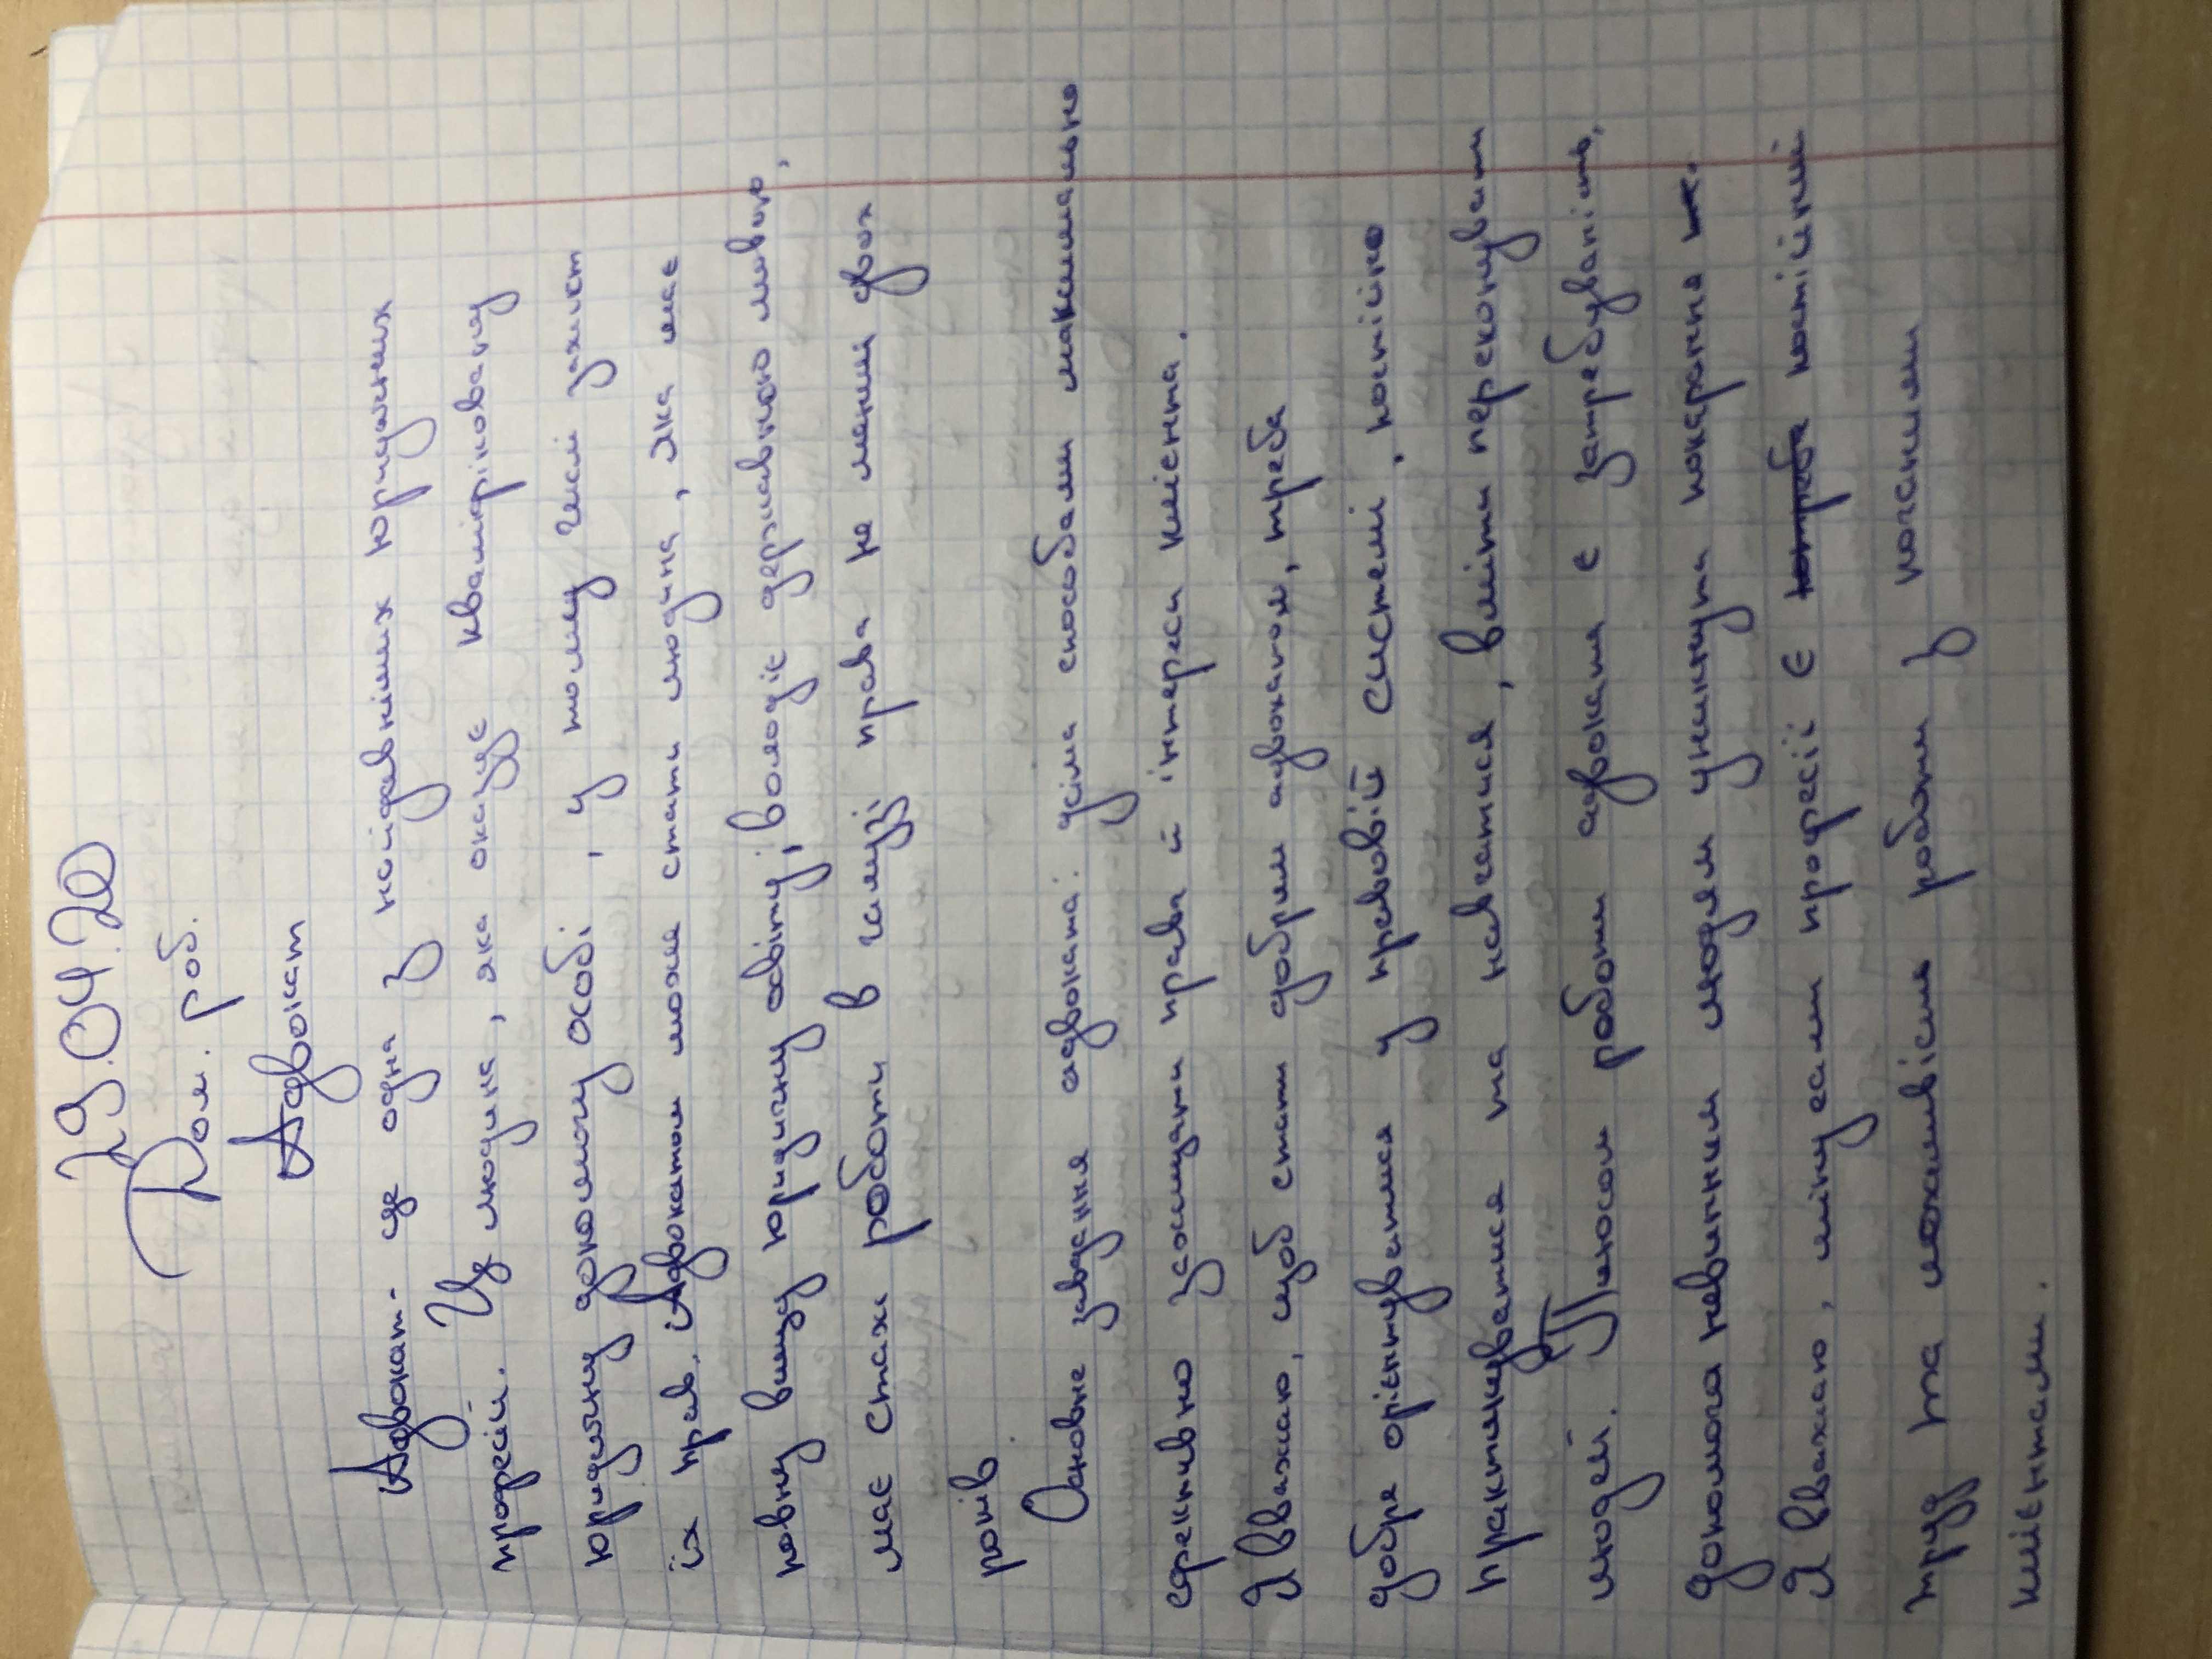 29.04.20
Дом. роб.
Адвокат
Адвокат- це одна з найдавніших юридичних
професій. Це людина, яка оказує кваліфіковану
юридичну допомогу особі, у тому числі захист
їх прав. Адвокатом може стати людина, яка має
повну вищу юридичну освіту, володіє державною мовою,
має стаж роботи в галузі права не менш двох
років
Основне завдення адвоката: усіма способами максимально
ефективно захищати права й інтереси клієнта.
Я вважаю, щоб стати добрим адвокатом, треба
добре орієнтуватися у правовій системі, постійно
практикуватися та навчатися, вміти переконувати
людей. Плюсом роботи адвоката є затребуваність,
допомога невинним людям уникнути покарання.
Я вважаю, мінусами професії є постійний
труд та можливість роботи з поганими
клієнтами.